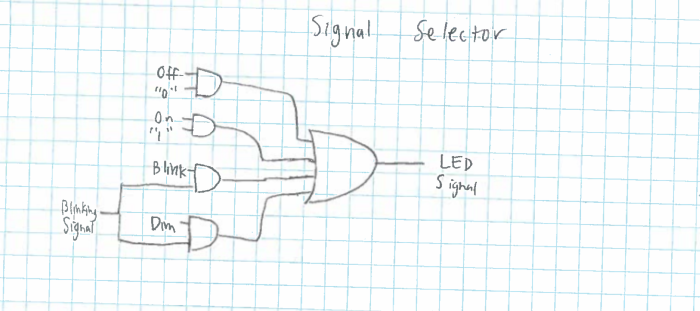 Signal Selector
Off
"0"
On
"1"
Blink
Blinking
Signal
Dim
LED
Signal